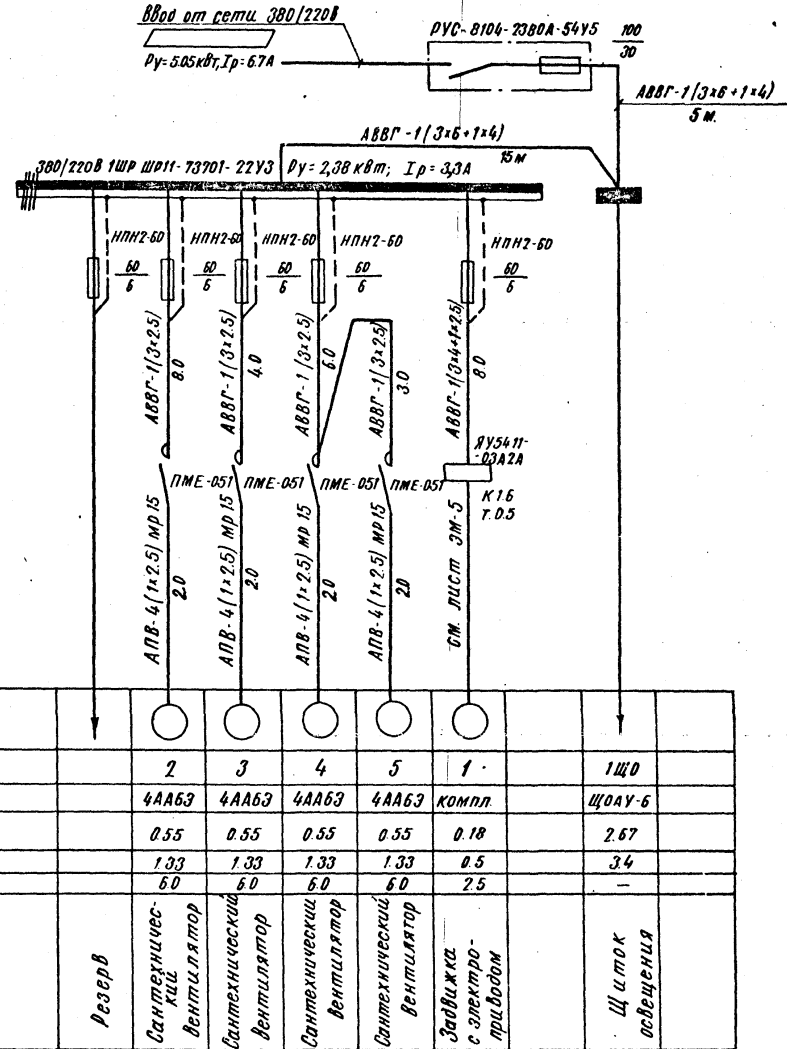 Ввод от сети 380/220В
Ру=5.05кВт, Iр=6.7А
РУС-8104-2380А-54У5
100
30
АВВГ-1(3×6+1×4)
5 м.
АВВГ-1(3×6+1×4)
15м
380/220В 1ШР ШР11-73701-22У3 Ру=2,38 кВт; Iр=3,3А
НПН2-60 НПН2-60 НПН2-60 НПН2-60 НПН2-60
60 60 60 60 60
6 6 6 6 6
АВВГ-1(3×2.5)
8.0
АВВГ-1(3×2.5)
4.0
АВВГ-1(3×2.5)
6.0
АВВГ-1(3×2.5)
3.0
АВВГ-1(3×4+1×2.5)
8.0
ПМЕ-051 ПМЕ-051 ПМЕ-051 ПМЕ-051
ЯУ5411-
-03А2А
К1.6
т.0.5
АПВ-4(1×2.5) мр15
2.0
АПВ-4(1×2.5) мр15
2.0
АПВ-4(1×2.5) мр15
2.0
АПВ-4(1×2.5) мр15
2.0
см. лист ЭМ-5
2 3 4 5 1 1ЩО
4АА63 4АА63 4АА63 4АА63 компл. ЩОАУ-6
0.55 0.55 0.55 0.55 0.18 2.67
1.33 1.33 1.33 1.33 0.5 3.4
6.0 6.0 6.0 6.0 2.5 —
Резерв
Сантехничес-
кий
вентилятор
Сантехнический
вентилятор
Сантехнический
вентилятор
Сантехнический
вентилятор
Задвижка
с электро-
приводом
Щиток
освещения